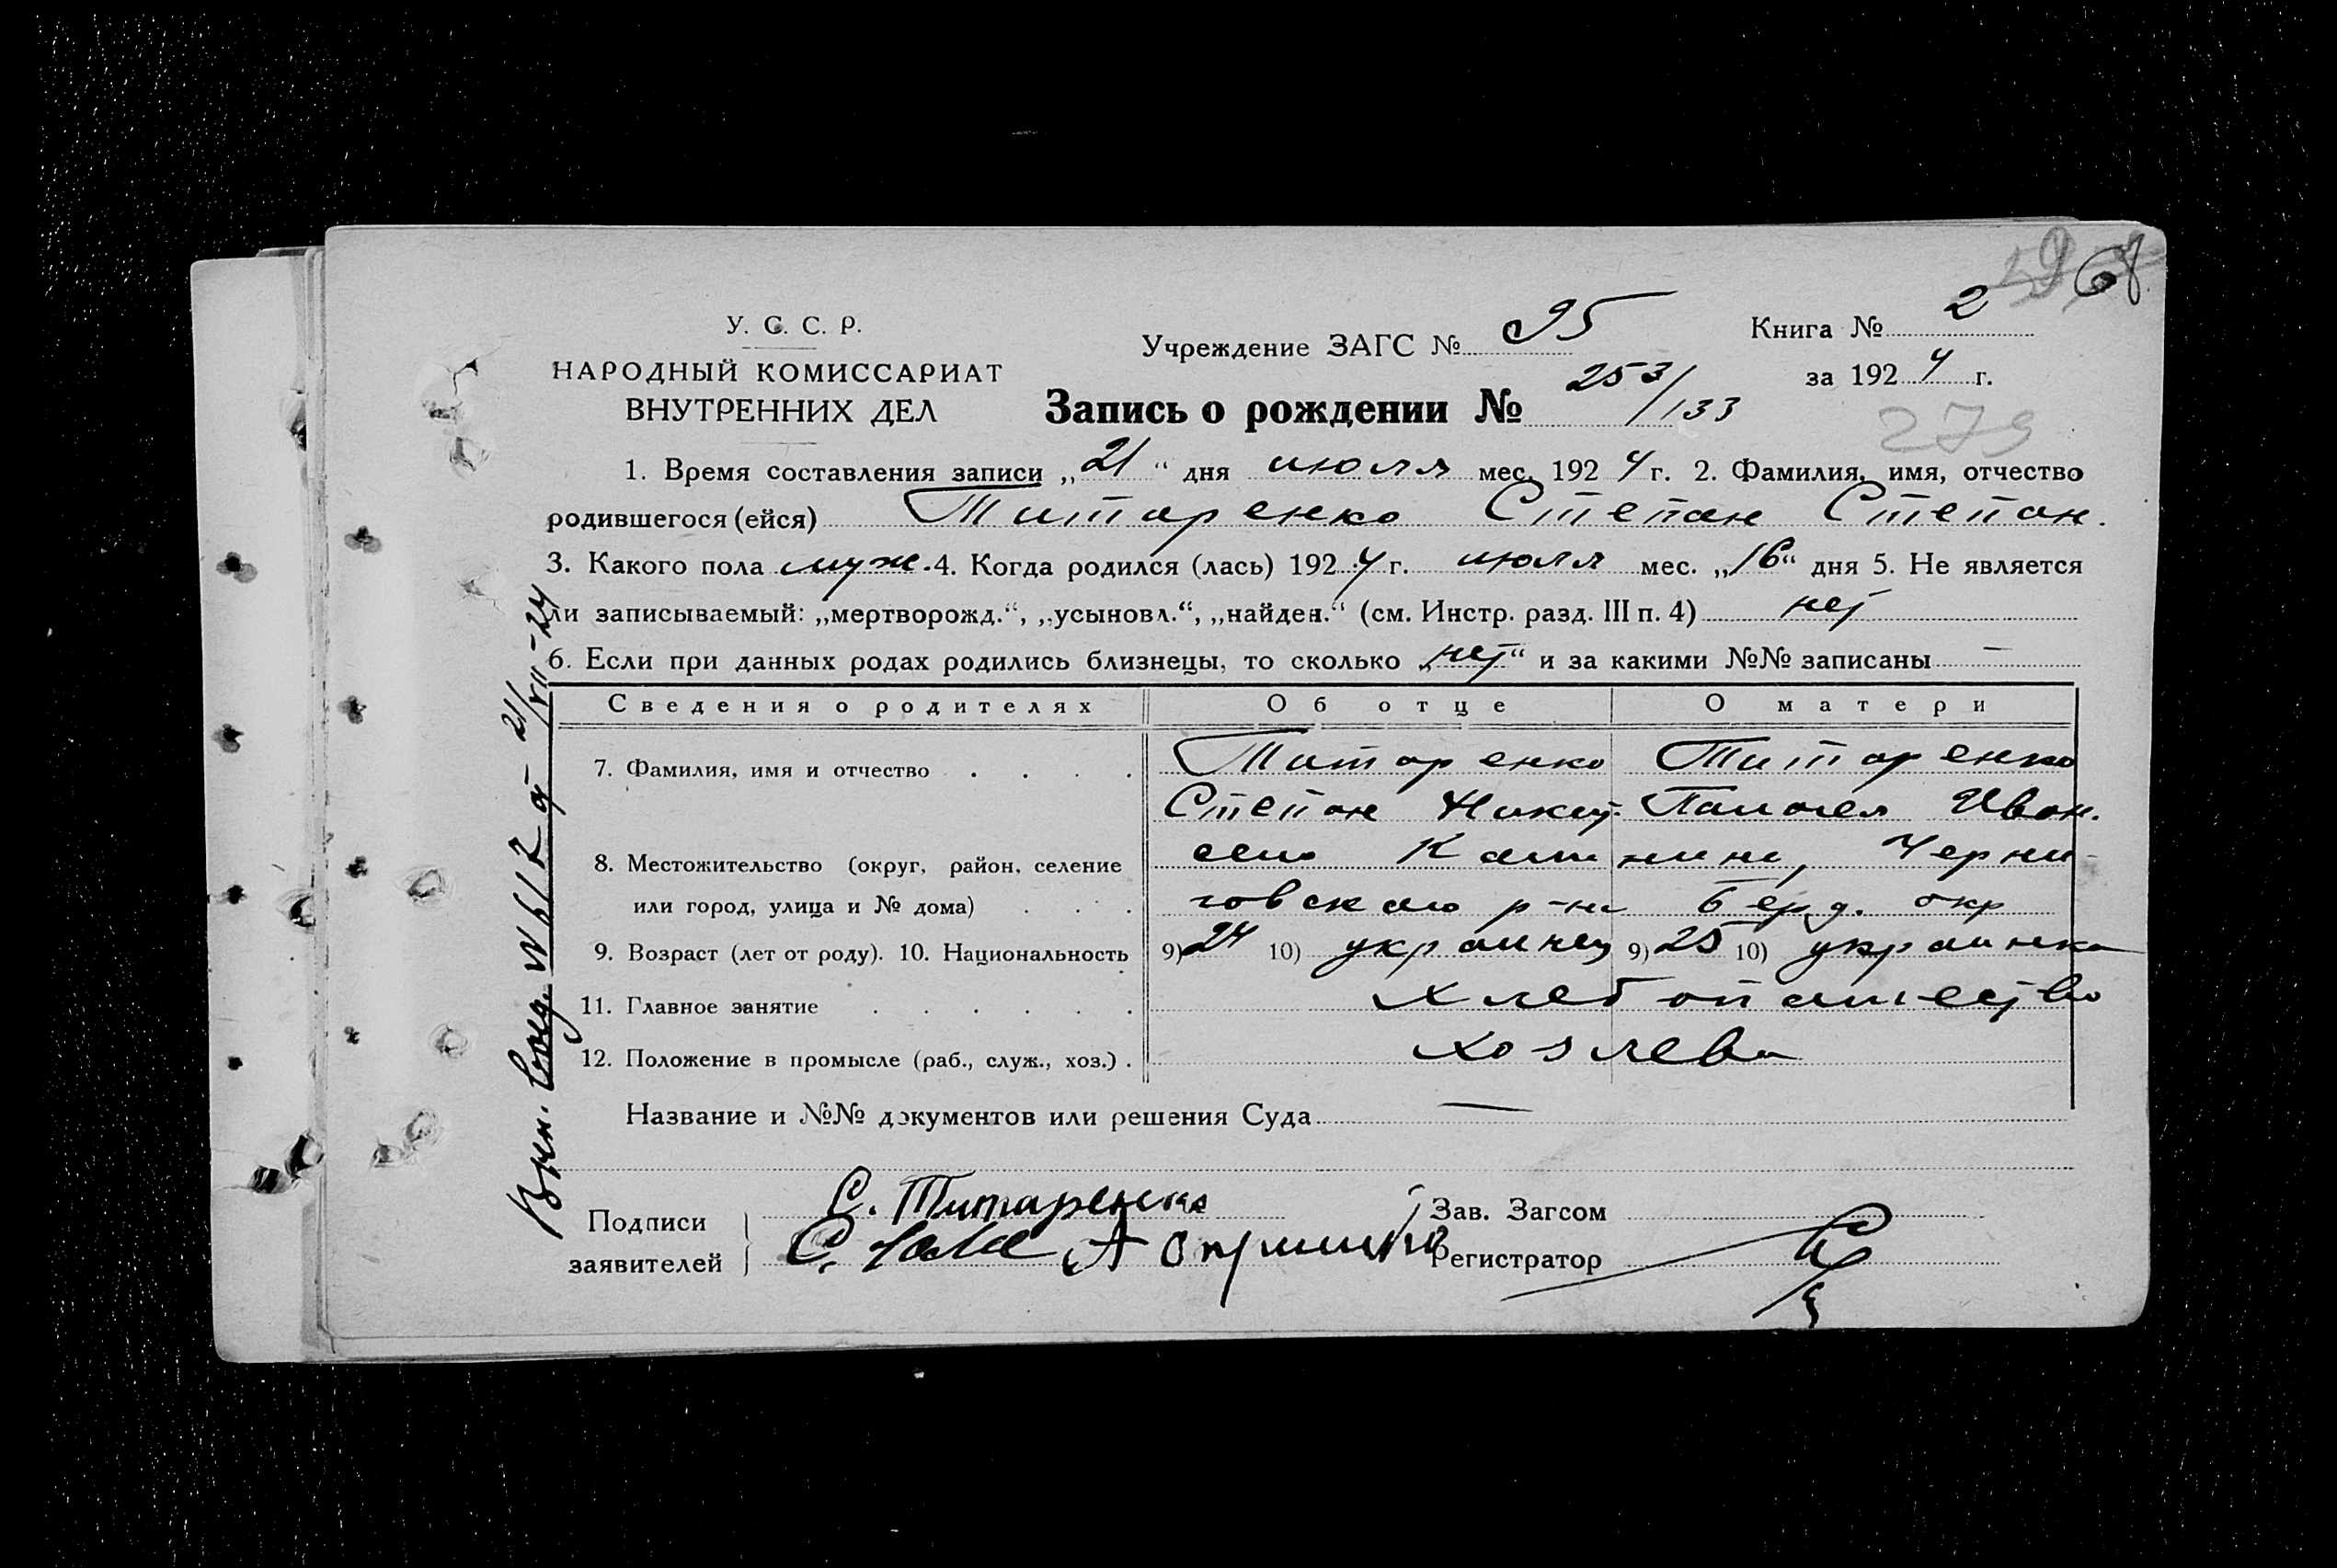 68
У. С. С. Р.
НАРОДНЫЙ КОМИССАРИАТ
ВНУТРЕННИХ ДЕЛ
Учреждение ЗАГС № 95
Книга № 2
за 1924 г.
Запись о рождении № 253/133
279
1. Время составления записи „21“ дня июля мес. 1924 г. 2. Фамилия, имя, отчество
родившегося (ейся) Титаренко Степан Степан.
3. Какого пола муж. 4. Когда родился (лась) 1924 г. июля мес. „16“ дня 5. Не является
ли записываемый: „мертворожд.“, „усыновл.“, „найден.“ (см. Инстр. разд. III п. 4) нет
6. Если при данных родах родились близнецы, то сколько „нет“ и за какими №№ записаны —
Сведения о родителях Об отце О матери
7. Фамилия, имя и отчество . . . . Титаренко Титаренко
Степан Никит. Пелагея Иван.
8. Местожительство (округ, район, селение село Черни-
или город, улица и № дома) . . . говского р-на Берд. окр
9. Возраст (лет от роду). 10. Национальность 9) 24 10) украинец 9) 25 10) украинка
11. Главное занятие . . . . . . хлебопашество
12. Положение в промысле (раб., служ., хоз.) . хозяева
Название и №№ документов или решения Суда —
Подписи заявителей
С. Титаренко
Зав. Загсом
Регистратор
21/VII-24